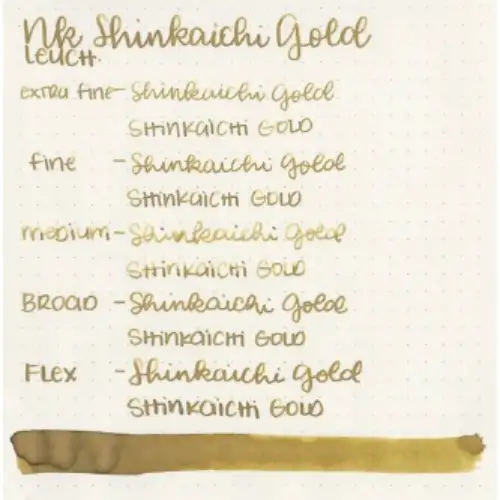 NK Shinkaichi Gold
LEUCHT.
extra fine - Shinkaichi Gold
SHinKaiCHi GOLD
fine - Shinkaichi Gold
SHinKaiCHi GOLD
meDium - Shinkaichi Gold
SHinKaiCHi GOLD
BROaD - Shinkaichi Gold
SHinKaiCHi GOLD
FLex - Shinkaichi Gold
SHinKaiCHi GOLD